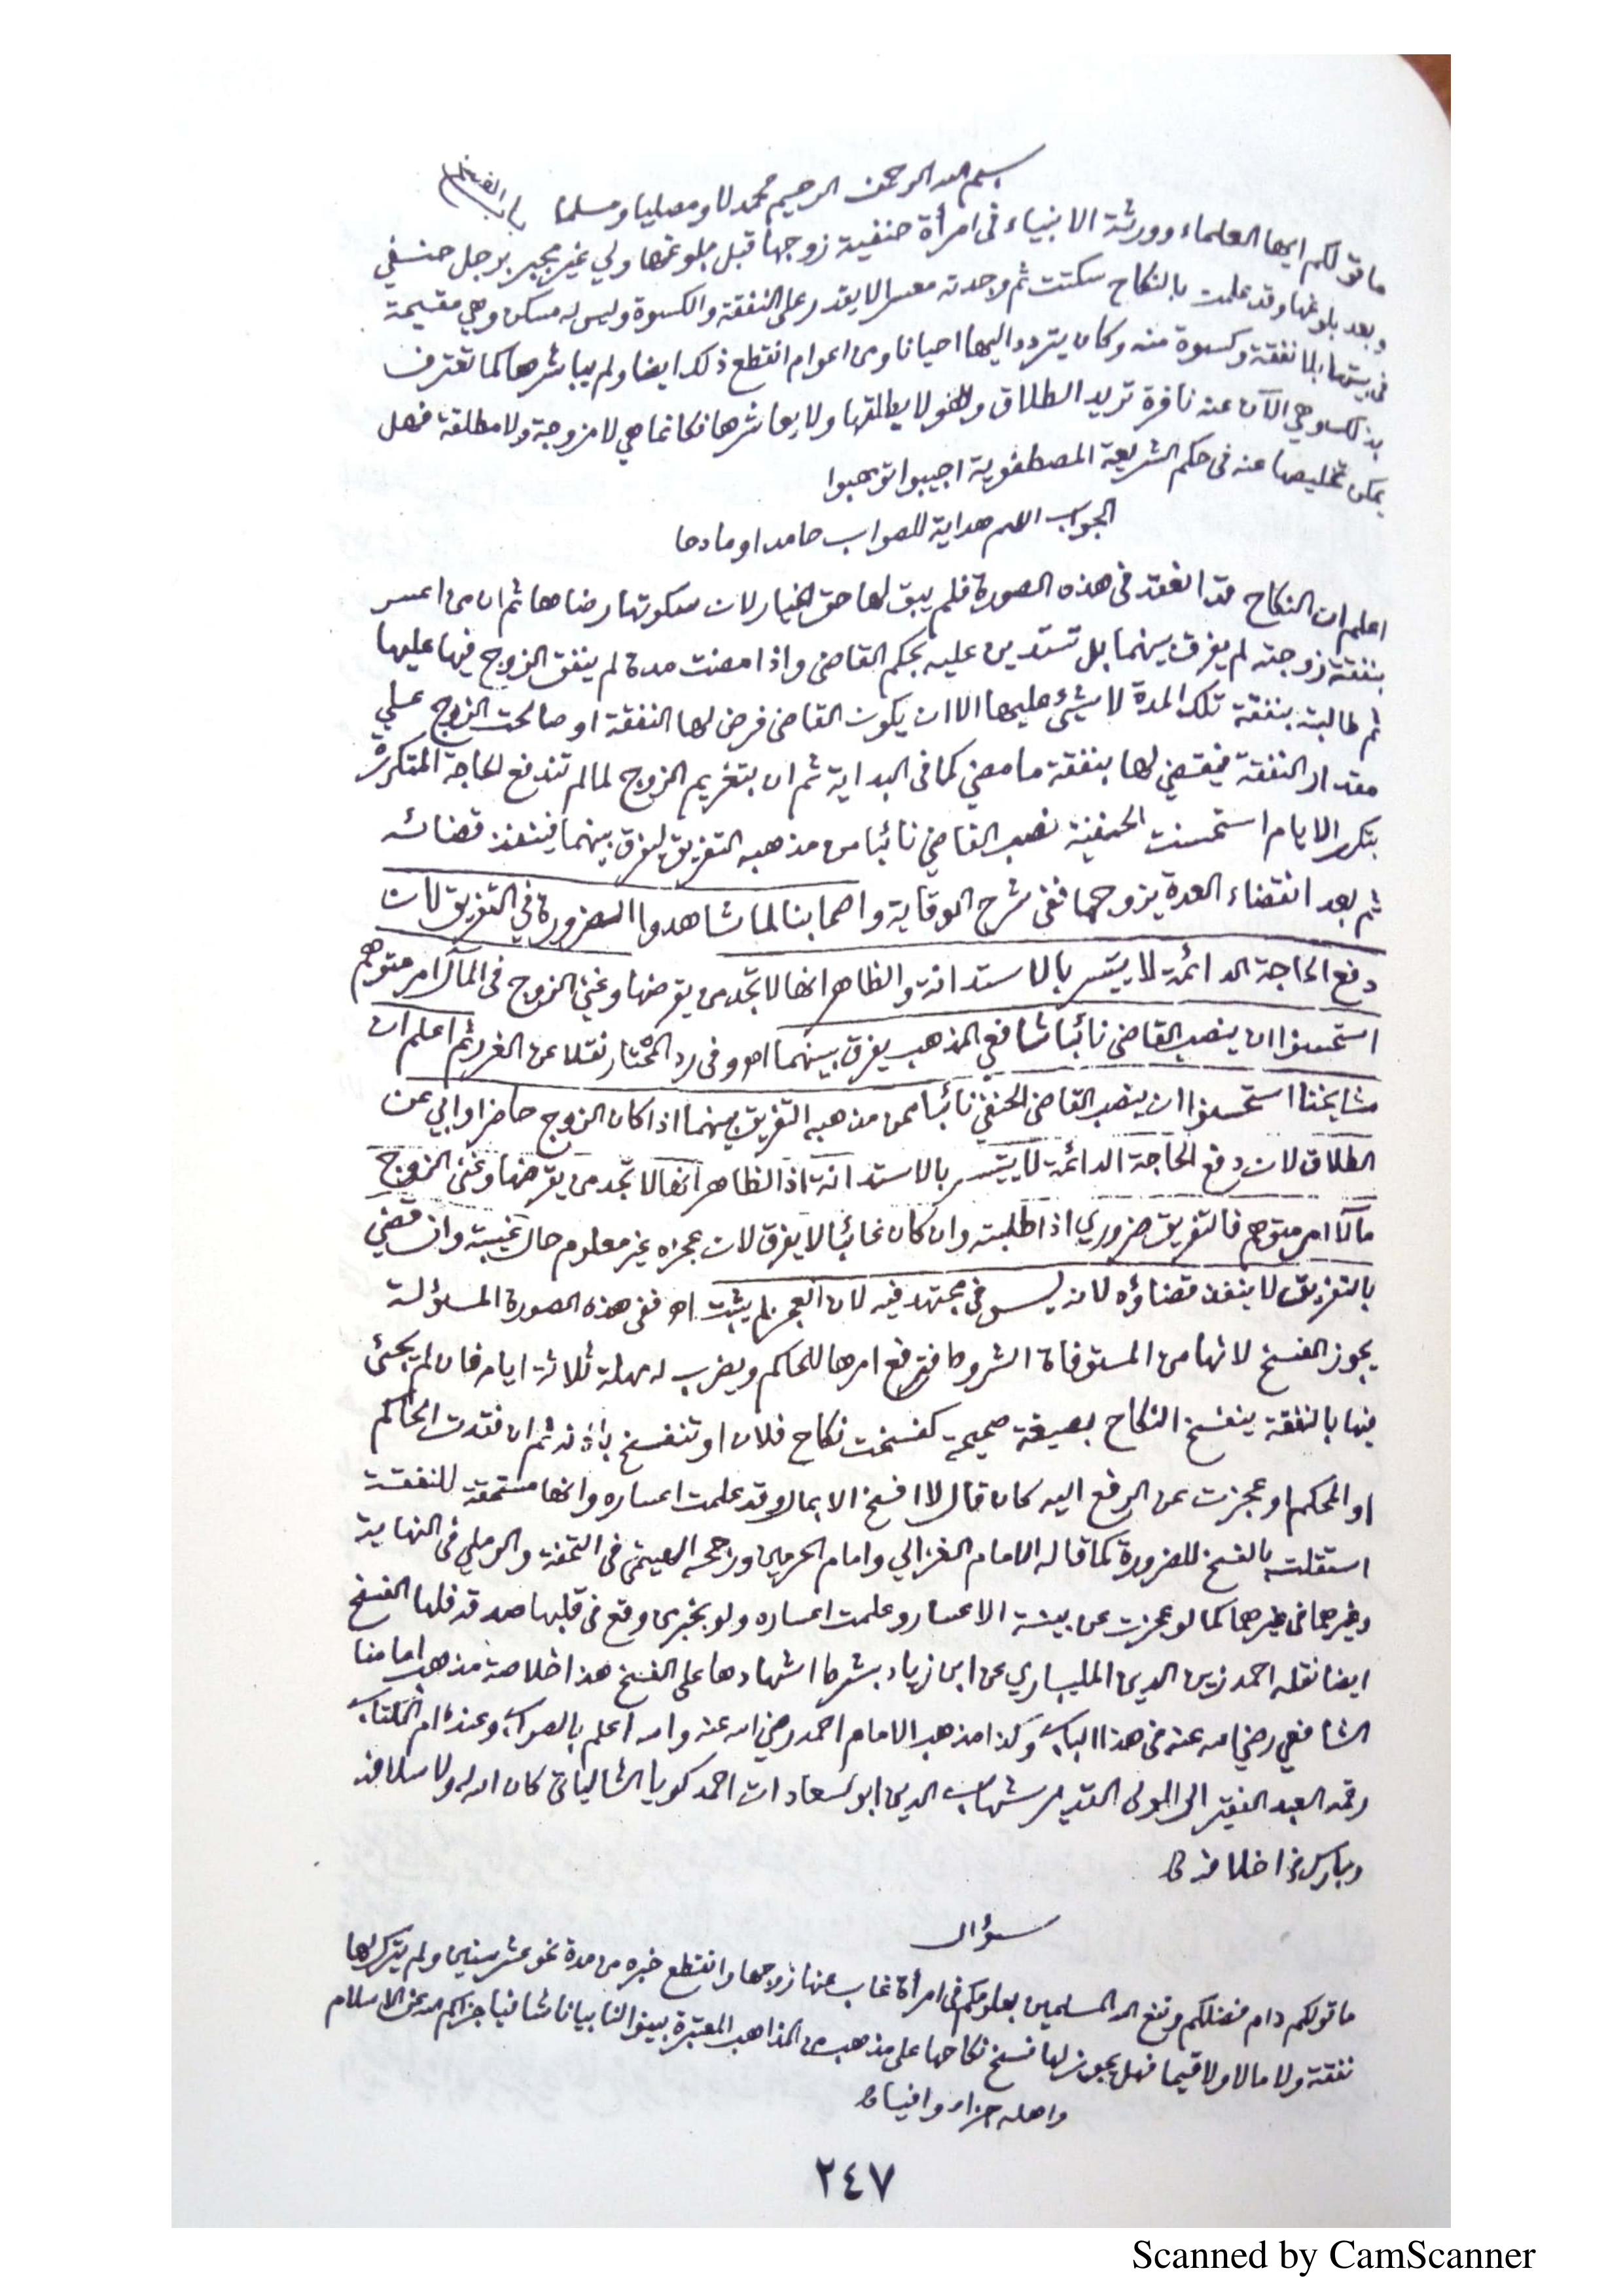 بسم الله الرحمن الرحيم محمدلا ومصليا ومسلما باب الفسخ
ما قولكم ايها العلماء وورثة الانبياء فى امرأة حنفية زوجها قبل بلوغها ولي غير مجبر برجل حنفي
وبعد بلوغها وقد علمت بالنكاح سكتت ثم وجدته معسرا لا يقدر على النفقة والكسوة وليس له مسكن وهي مقيمة
فى بيتها بلا نفقة وكسوة منه وكان يتردد اليها احيانا ومن اعوام انقطع ذلك ايضا ولم يباشرها كما تعترف
بذلك وهي الآن عنه نافرة تريد الطلاق وهو لا يطلقها ولا يعاشرها فكانما هي لا مزوجة ولا مطلقة فهل
يمكن تخليصها عنه فى حكم الشريعة المصطفوية اجيبوا توهبوا
الجواب اللهم هداية للصواب حامدا ومادحا
اعلم ان النكاح قد انعقد فى هذه الصورة فلم يبق لها حق الخيار لان سكوتها رضاها ثم ان من اعسر
بنفقة زوجته لم يفرق بينهما بل تستدين عليه بحكم القاضى واذا مضت مدة لم ينفق الزوج فيها عليها
ثم طالبته بنفقة تلك المدة لا شيئ عليها الا ان يكون القاضى فرض لها النفقة او صالحت الزوج على
مقدار النفقة فيقضي لها بنفقة ما مضي كما فى البداية ثم ان بتغريم الزوج لما لم تندفع الحاجة المتكررة
بتكرر الايام استحسنت الحنفية نصب القاضي نائبا من مذهبه التفريق ليفرق بينهما فينفذ قضائه
ثم بعد انقضاء العدة يزوجها ففى شرح الوقاية واصحابنا لما شاهدوا الضرورة في التفريق لان
دفع الحاجة الدائمة لا يتيسر بالاستدانة والظاهر انها لا تجد من يقرضها وغنى الزوج فى المآل امر متوهم
استحسنوا ان ينصب القاضى نائبا شافعي المذهب يفرق بينهما اه وفى رد المحتار نقلا عن الغرر ثم اعلم ان
مشايخنا استحسنوا ان ينصب القاضى الحنفي نائبا ممن مذهبه التفريق بينهما اذا كان الزوج حاضرا وابي عن
الطلاق لان دفع الحاجة الدائمة لا يتيسر بالاستدانة اذ الظاهر انها لا تجد من يقرضها وغنى الزوج
مآلا امر متوهم فالتفريق ضروري اذا طلبته وان كان غائبا لا يفرق لان عجزه غير معلوم حال غيبته وان قضي
بالتفريق لا ينفذ قضاؤه لانه ليس فى مجتهد فيه لان العجز لم يثبت اه ففى هذه الصورة المسؤلة
يجوز الفسخ لانها من المستوفاة الشروط فترفع امرها للحاكم ويضرب له مهلة ثلاثة ايام فان لم يجئ
فيها بالنفقة ينفسخ النكاح بصيغة صحيحة كفسخت نكاح فلان او تنفسخ باذنه ثم ان فقدت الحاكم
او المحكم او عجزت عن الرفع اليه كان قال لا افسخ الا بمال وقد علمت اعساره وانها مستحقة للنفقة
استقلت بالفسخ للضرورة كما قاله الامام الغزالي وامام الحرمين ورجحه الهيتمى فى التحفة والرملي فى النهاية
وغيرهما فى غيرهما كما لو عجزت عن بينة الاعسار وعلمت اعساره ولو بخبر من وقع فى قلبها صدقه فلها الفسخ
ايضا نقله احمد زين الدين المليباري عن ابن زياد بشرط اشهادها على الفسخ هذا خلاصة مذهب امامنا
الشافعي رضي الله عنه فى هذا الباب وكذا مذهب الامام احمد رضي الله عنه والله اعلم بالصواب وعنده ام الكتاب
رقمه العبد الفقير الى المولى القدير شهاب الدين ابو السعادات احمد كويا الشالياتى كان الله له ولاسلافه
وبارك فى اخلافه
سؤال
ما قولكم دام فضلكم ونفع الله المسلمين بعلومكم فى امرأة غاب عنها زوجها وانقطع خبره من مدة نحو عشر سنين ولم يترك لها
نفقة ولا مالا ولا قيما فهل يجوز لها فسخ نكاحها على مذهب من المذاهب المعتبرة بينوا لنا بيانا شافيا جزاكم الله عن الاسلام
واهله جزاء وافيا
٢٤٧
Scanned by CamScanner